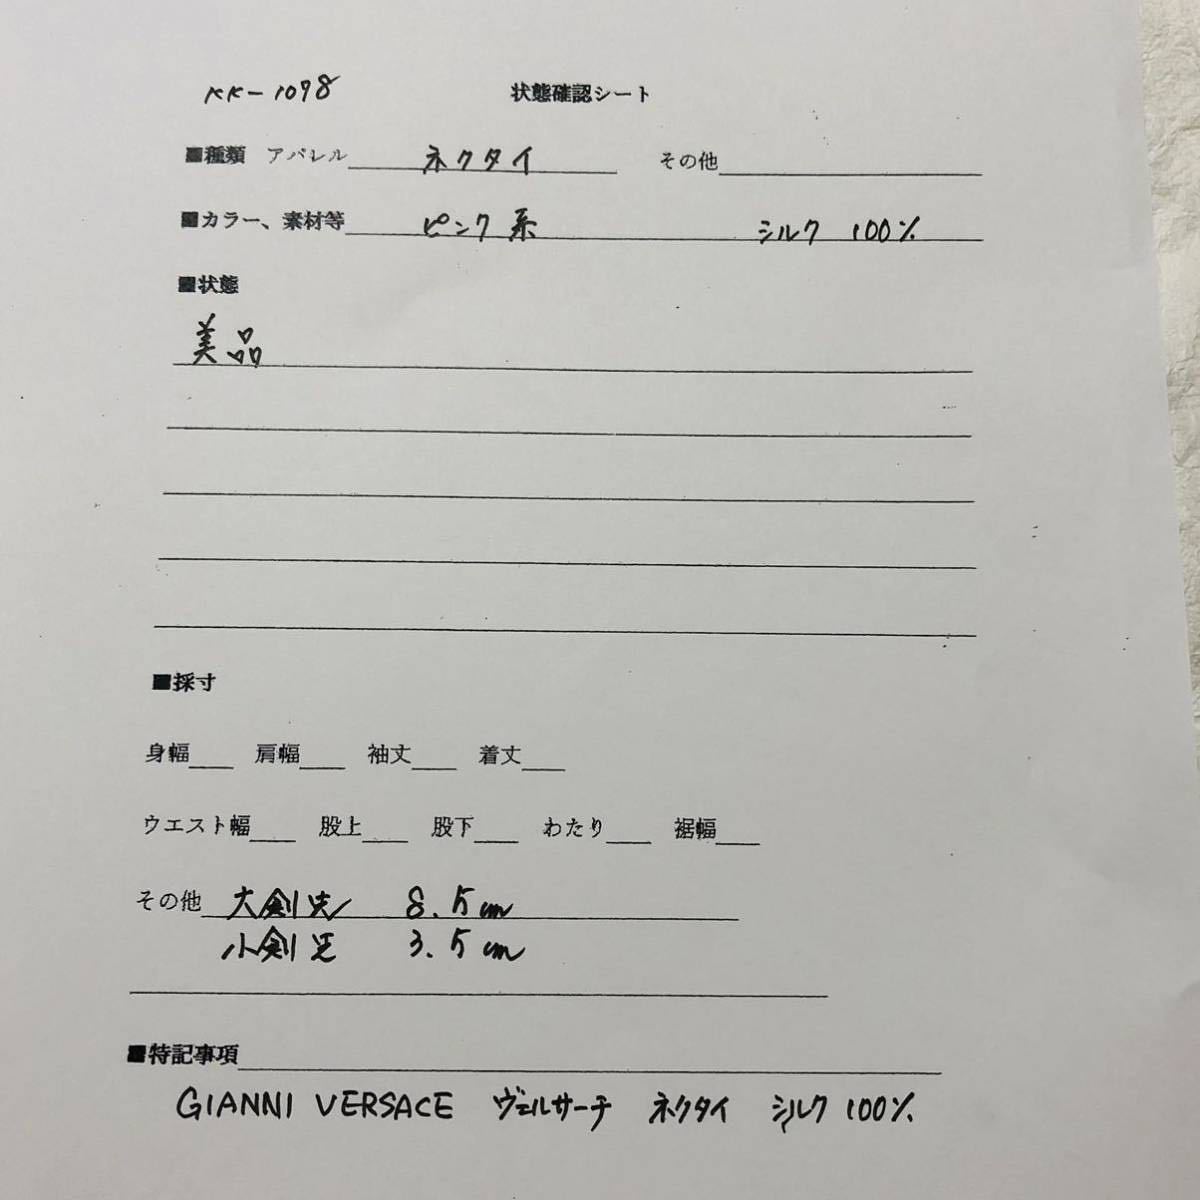 KK-1098 状態確認シート
■種類 アパレル ネクタイ その他
■カラー、素材等 ピンク系 シルク 100%
■状態
美品
■採寸
身幅 肩幅 袖丈 着丈
ウエスト幅 股上 股下 わたり 裾幅
その他 大剣先 8.5cm
小剣 3.5cm
■特記事項
GIANNI VERSACE ヴェルサーチ ネクタイ シルク 100%